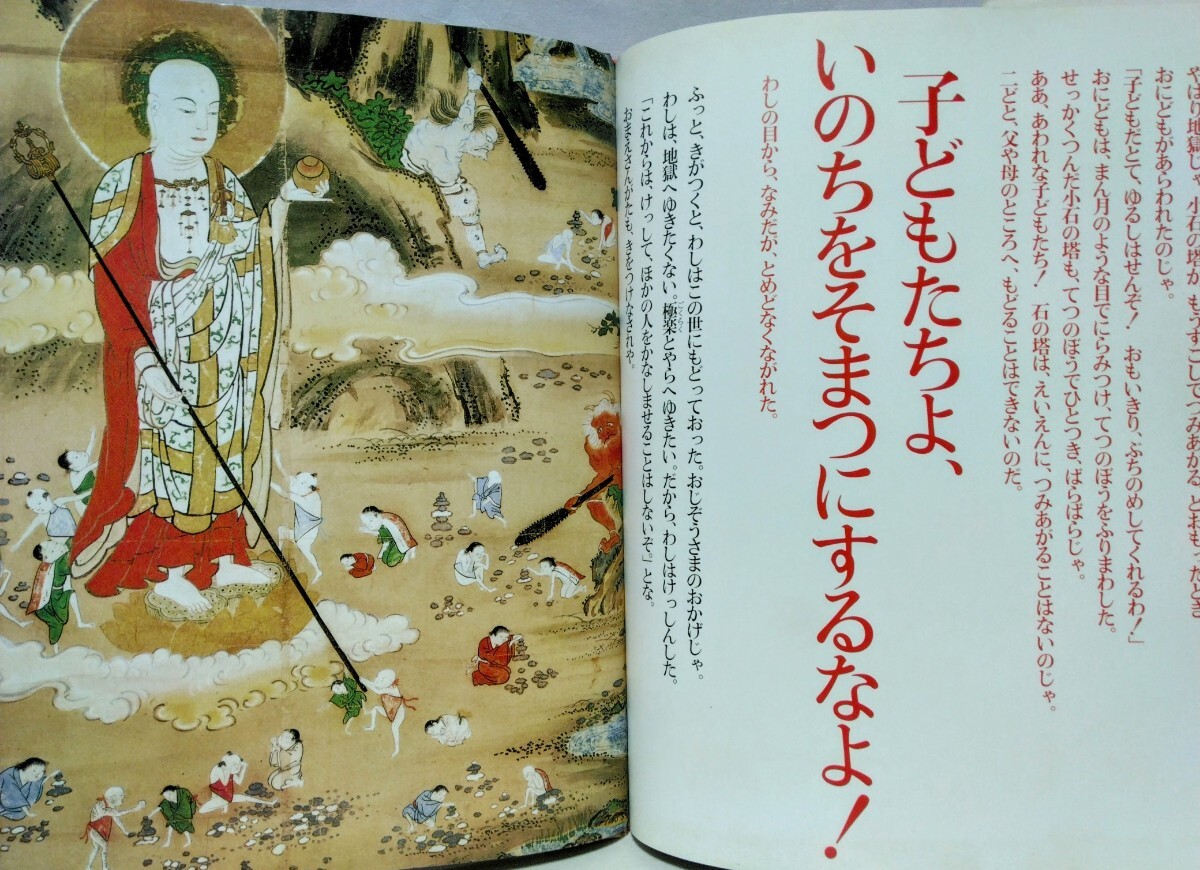 やはり地獄じゃ。小石の塔が、もうすこしでつみあがる、とおもったとき
おにどもがあらわれたのじゃ。
「子どもだとて、ゆるしはせんぞ！　おもいきり、ぶちのめしてくれるわ！」
おにどもは、まん月のような目でにらみつけ、てつのぼうをふりまわした。
せっかくつんだ小石の塔も、てつのぼうでひとつき、ばらばらじゃ。
ああ、あわれな子どもたち！　石の塔は、えいえんに、つみあがることはないのじゃ。
二どと、父や母のところへ、もどることはできないのだ。
子どもたちよ、
いのちをそまつにするなよ！
わしの目から、なみだが、とめどなくながれた。
ふっと、きがつくと、わしはこの世にもどっておった。おじぞうさまのおかげじゃ。
わしは、地獄へゆきたくない。極楽とやらへゆきたい。だから、わしはけっしんした。
ごくらく
「これからは、けっして、ほかの人をかなしませることはしないぞ。」とな。
おまえさんがたも、きをつけなされや。